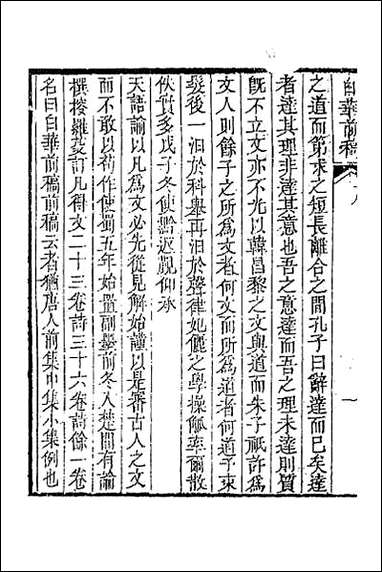 白華前稿
一
之道而第求之短長離合之間孔子曰辭達而已矣達
者達其理非達其意也吾之意達而吾之理未達則質
旣不立文亦不先以韓昌黎之文與道而朱子祇許為
文人則餘子之所為文者何文而所為道者何道予束
髮後一汩於科舉再汩於聲律妃儷之學操觚率爾散
佚實多戊子冬使黔返覲仰承
天語諭以凡為文必先從見解始謹以是審古人之文
而不敢以苟作使蜀五年始置副墨前冬入楚間有論
撰椄雖芟訂凡得文二十三卷詩三十六卷詩餘一卷
名曰白華前稿前稿云者猶唐人前集中集小集例也